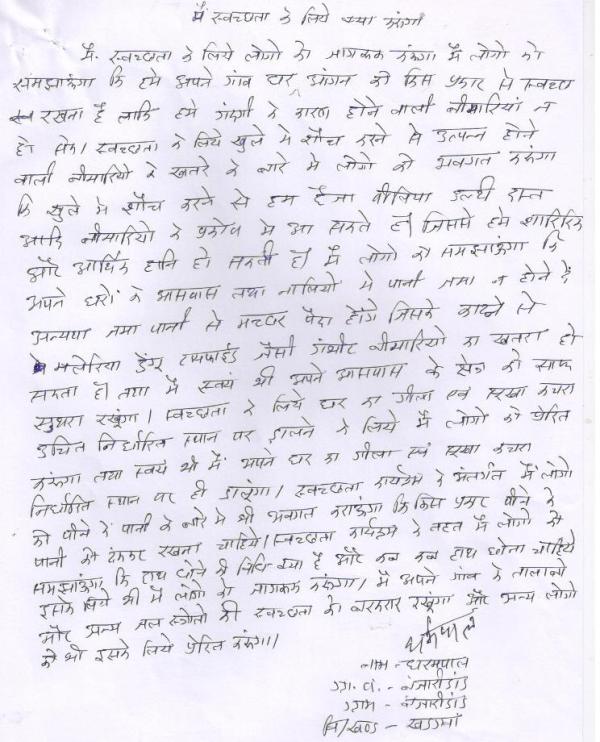 मैं स्वच्छता के लिये क्या करूंगा
मैं स्वच्छता के लिये लोगो को जागरूक करूंगा मैं लोगो को
समझाऊंगा कि हमे अपने गांव घर आंगन को किस प्रकार से स्वच्छ
रखना है ताकि हमे गंदगी के कारण होने वाली बीमारियां न
हो सके। स्वच्छता के लिये खुले मे शौच करने से उत्पन्न होने
वाली बीमारियो के खतरे के बारे मे लोगो को अवगत करूंगा
कि खुले मे शौच करने से हम हैजा पीलिया उल्टी दस्त
आदि बीमारियो के प्रकोप मे आ सकते है। जिससे हमे शारिरिक
और आर्थिक हानि हो सकती है। मैं लोगो को समझाऊंगा कि
अपने घरों के आसपास तथा नालियो मे पानी जमा न होने दें
अन्यथा जमा पानी से मच्छर पैदा होंगे जिसके काटने से
मलेरिया डेंगू टायफाईड जैसी गंभीर बीमारियो का खतरा हो
सकता है। तथा मैं स्वयं भी अपने आसपास के क्षेत्र को साफ
सुथरा रखूंगा। स्वच्छता के लिये घर का गीला एवं सूखा कचरा
उचित निर्धारित स्थान पर डालने के लिये मैं लोगो को प्रेरित
करूंगा तथा स्वयं भी मैं अपने घर का गीला एवं सूखा कचरा
निर्धारित स्थान पर ही डालूंगा। स्वच्छता कार्यक्रम के अंतर्गत मैं लोगो
को पीने के पानी के बारे मे भी अवगत कराऊंगा कि किस प्रकार पीने के
पानी को ढंककर रखना चाहिये। स्वच्छता कार्यक्रम के तहत मैं लोगो को
समझाऊंगा कि हाथ धोने की विधि क्या है और कब कब हाथ धोना चाहिये
इसके लिये भी मैं लोगो को जागरूक करूंगा। मैं अपने गांव के तालाबो
और अन्य जल स्त्रोतो की स्वच्छता को बरकरार रखूंगा और अन्य लोगो
को भी इसके लिये प्रेरित करूंगा।
धर्मपाल
नाम - धरमपाल
ग्रा. पं. - बंजारीडांड
ग्राम - बंजारीडांड
वि/खण्ड - खडगवां